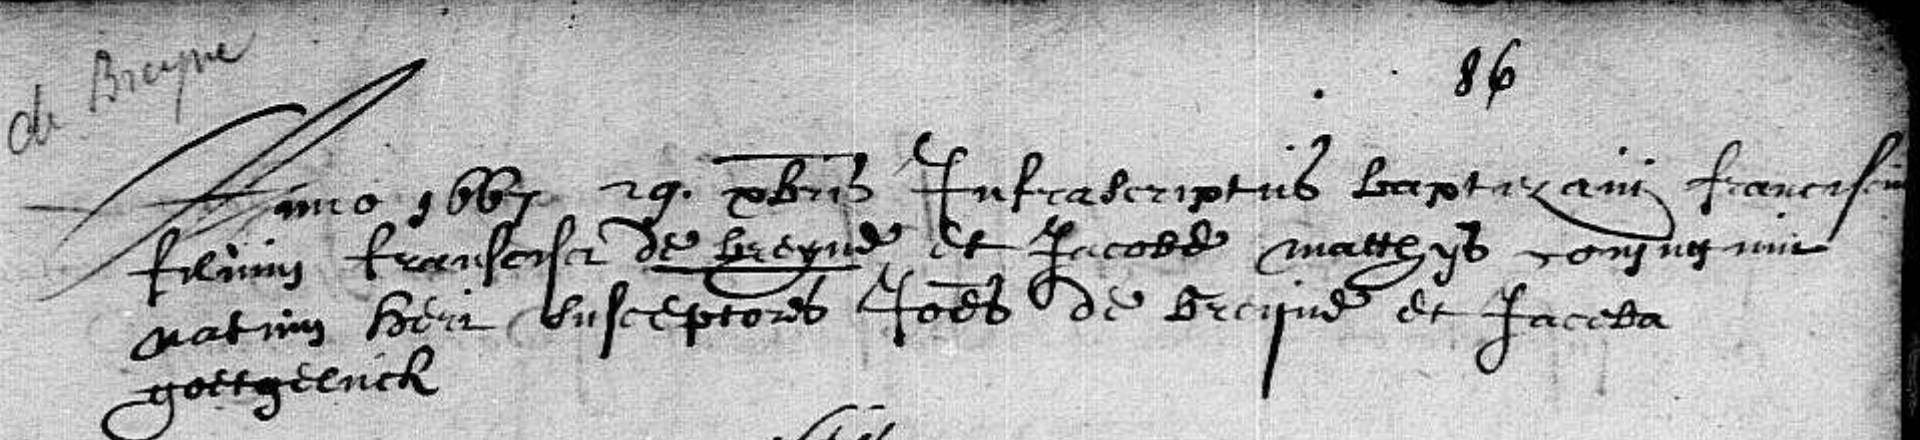 de Breyne
86
Anno 1667 29. xbris Infrascriptus baptizavi franciscu
filium francisci de breyne et Jacobe matthys conjugum
natum heri susceptores Joes de breyne et Jacoba
goetgeluck